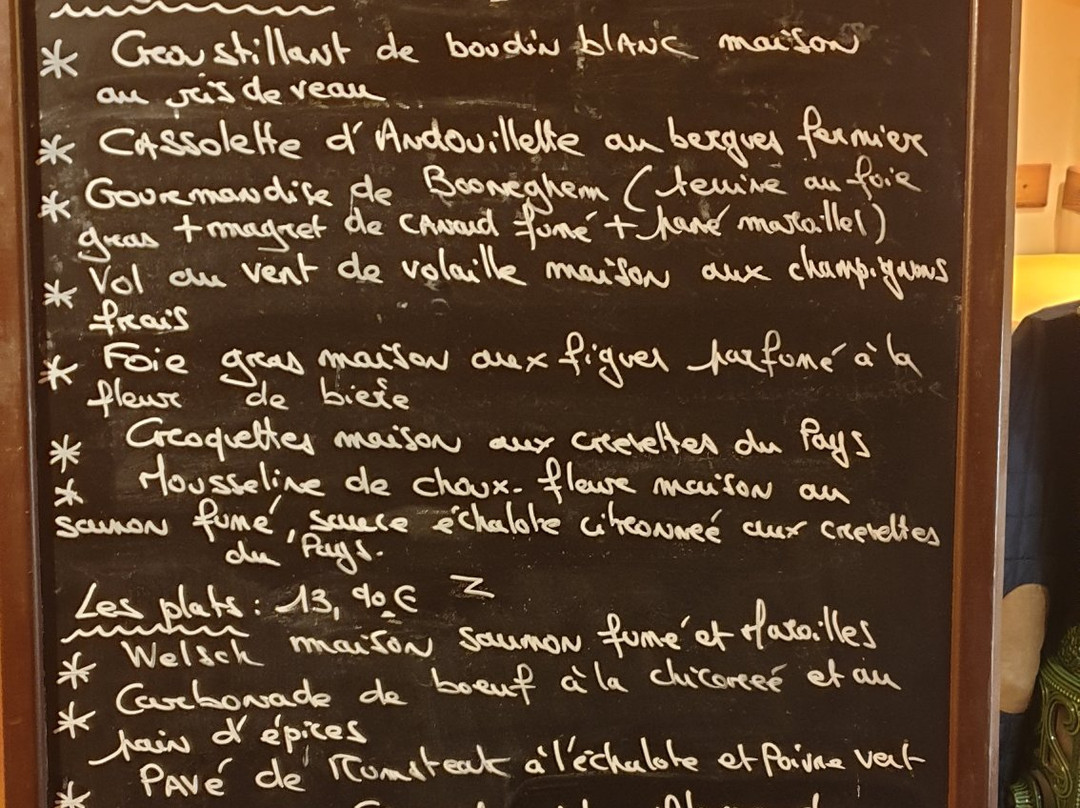 * Croustillant de boudin blanc maison
au ris de veau
* Cassolette d'Andouillette au bergues fermier
* Gourmandise de Booneghem (terrine au foie
gras + magret de canard fumé + pané maroilles)
* Vol au vent de volaille maison aux champignons
frais
* Foie gras maison aux figues parfumé à la
fleur de bière
* Croquettes maison aux crevettes du Pays
* Mousseline de choux-fleur maison au
saumon fumé, sauce échalote citronnée aux crevettes
du Pays.
Les plats : 13,90 €
* Welsch maison saumon fumé et Maroilles
* Carbonade de boeuf à la chicoreé et au
pain d'épices
* Pavé de Rumsteak à l'échalote et Poivre vert